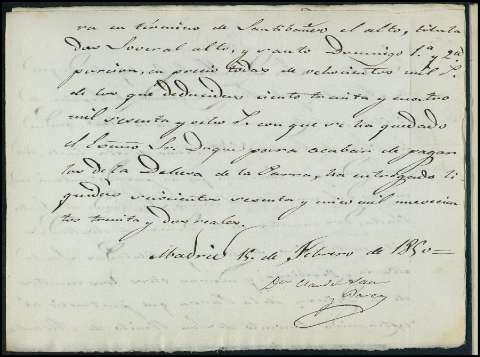 ra en término de Santibañez el alto, titula
das Soveral alto, y Santo Domingo 1.ª y 2.ª
porcion, en precio todas de
de los que deducidos ciento treinta y cuatro
mil sesenta y ocho r.ˢ con que se ha quedado
el Escmo Sr. Duque para acabar de pagar
las de la Dehesa de la Parra, ha entregado li
quidos seiscientos sesenta y cinco mil novecien
tos treinta y dos reales.
Madrid 15 de Febrero de 1850=